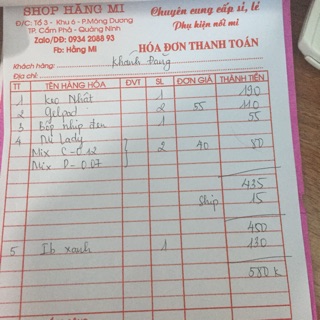 SHOP HẰNG MI
Chuyên cung cấp sỉ, lẻ
Đ/C: Tổ 3 - Khu 6 - P.Mông Dương
TP. Cẩm Phả - Quảng Ninh
Phụ kiện nối mi
Zalo/DĐ: 0934 2088 93
Fb: Hằng Mi
HÓA ĐƠN THANH TOÁN
Khách hàng: Khánh Băng
Địa chỉ:
TT TÊN HÀNG HÓA ĐVT SL ĐƠN GIÁ THÀNH TIỀN
1 keo Nhật 1 190
2 gelpad 2 55 110
3 nhíp đen 1 55
4 Mi lady
Mix C-0.12 2 40 80
Mix D-0.07
435
Ship 15
450
5 xanh 1 130
580k